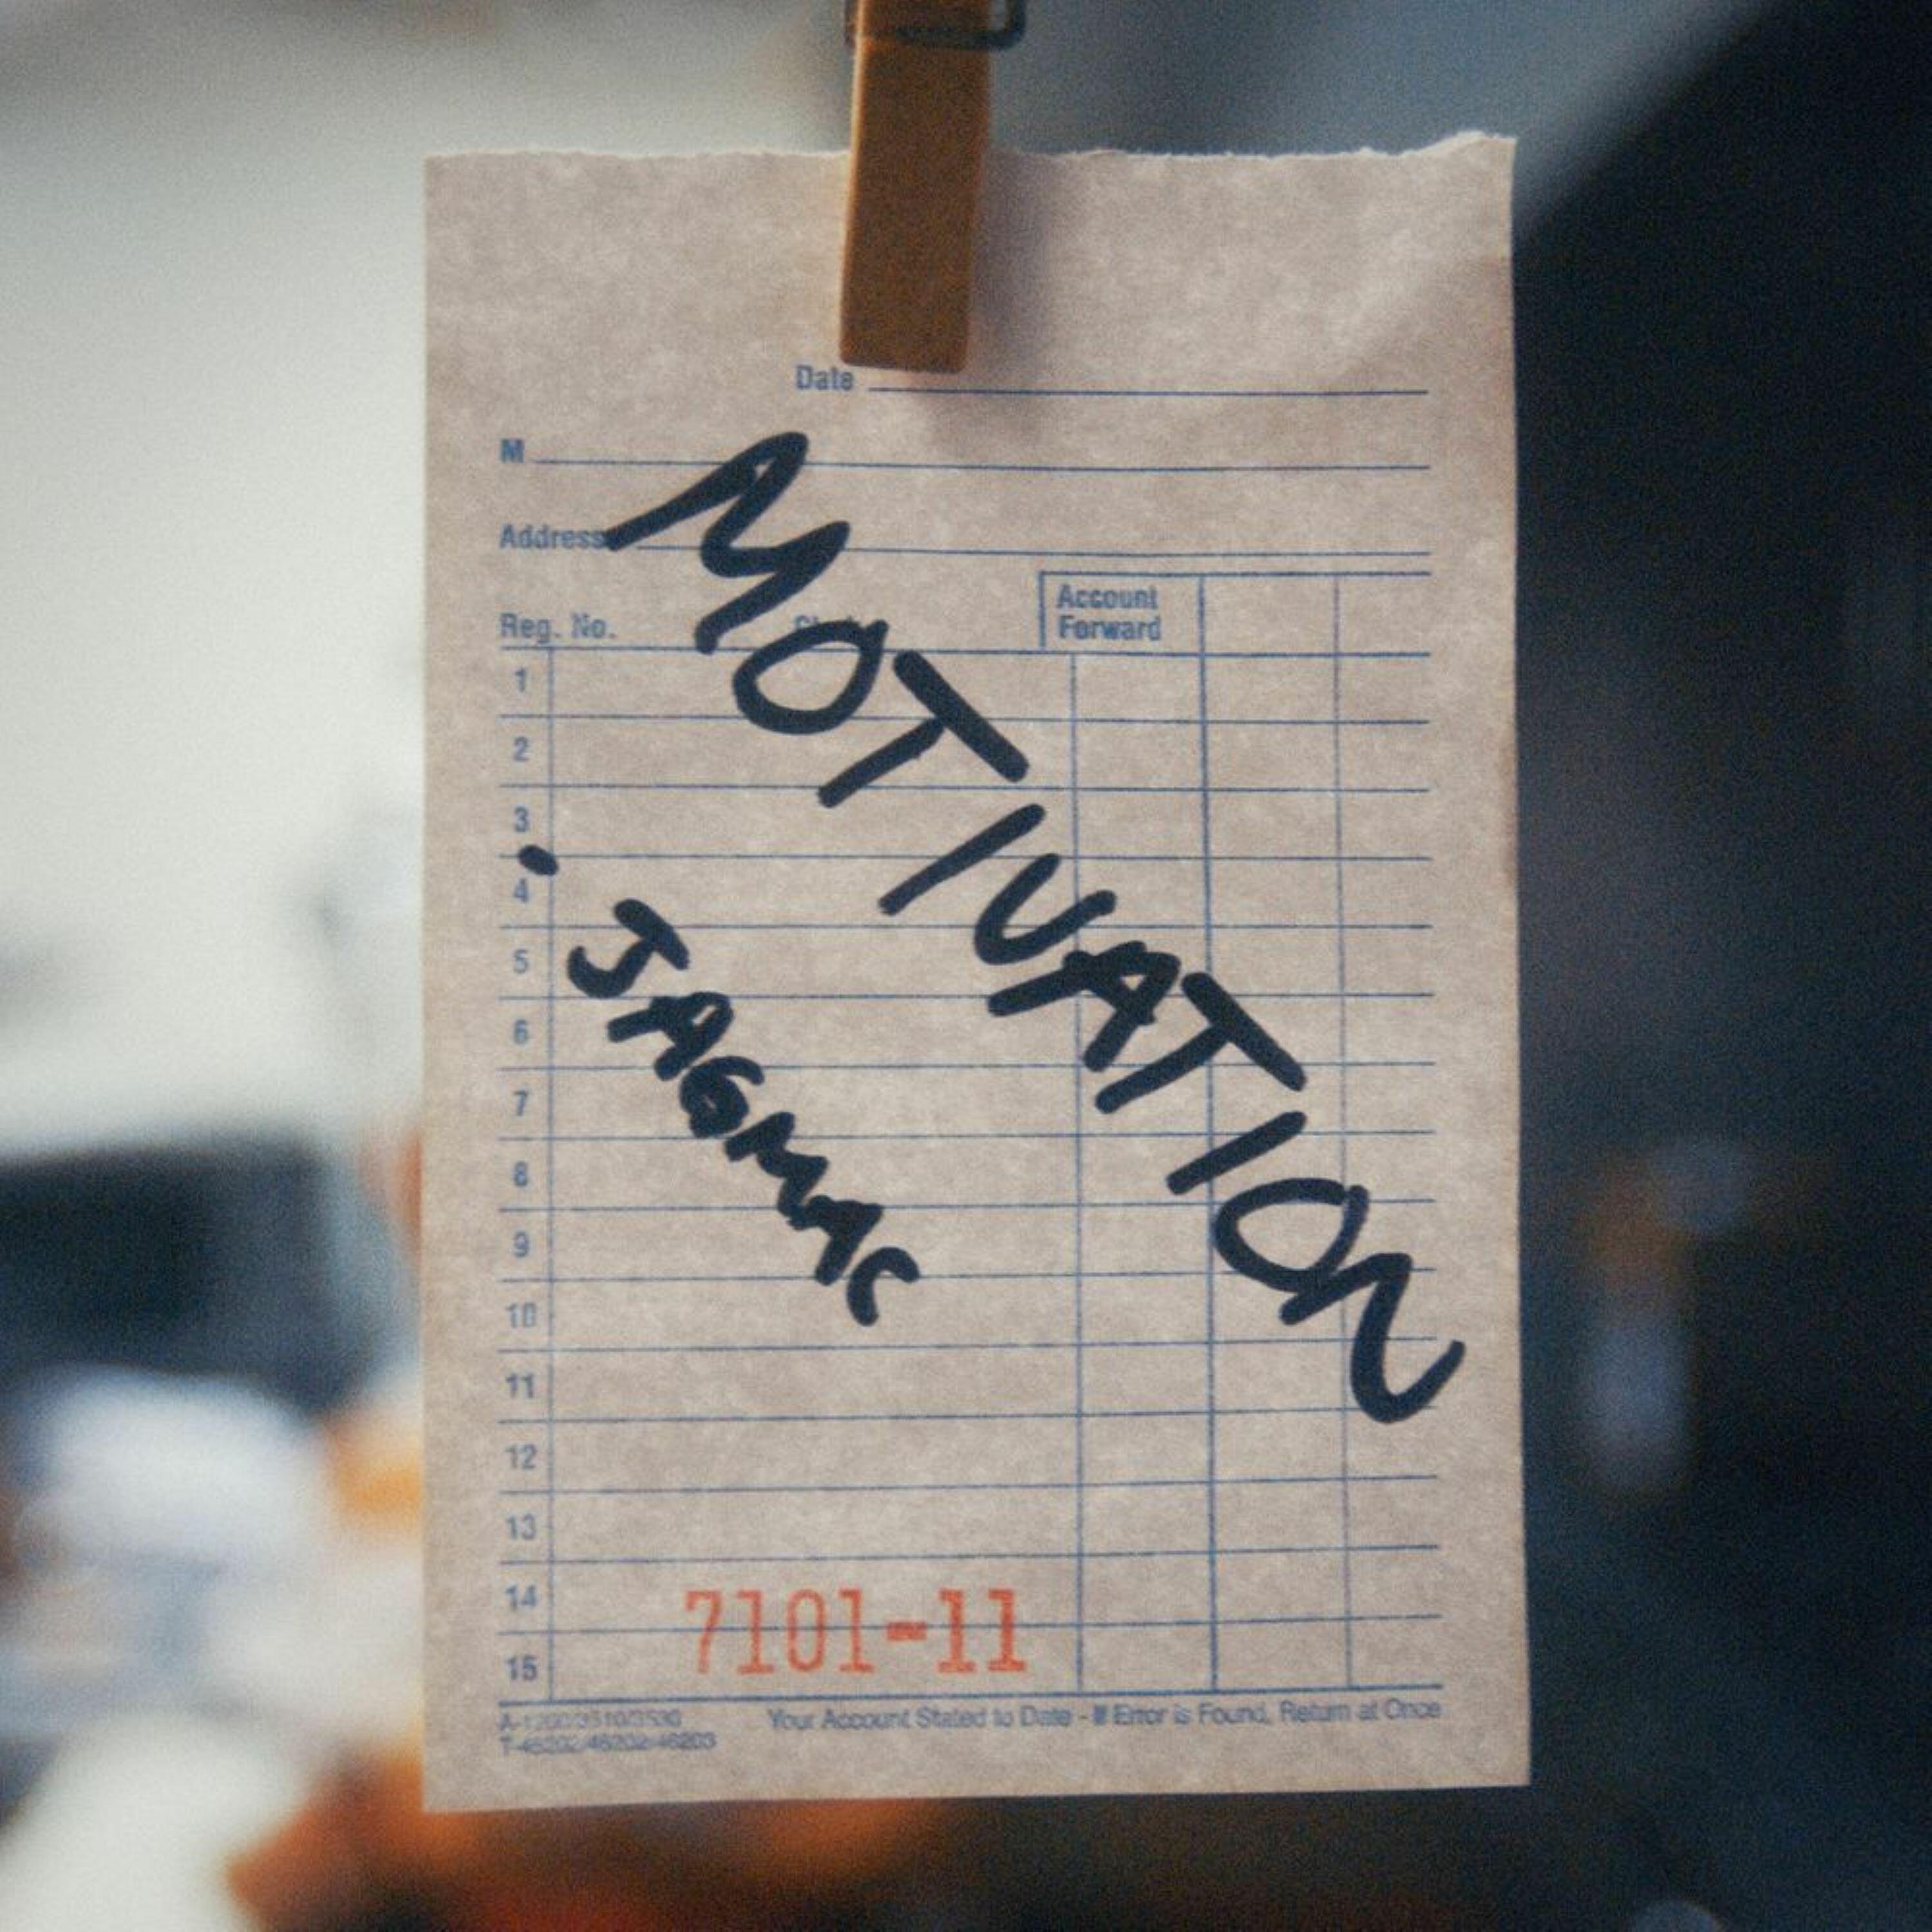 Date
M
Address
Reg. No.
Account
Forward
MOTIVATION
1
2
3
4
- JAGMAC
5
6
7
8
9
10
11
12
13
14
7101-11
15
Your Account Stated to Date - If Error is Found, Return at Once